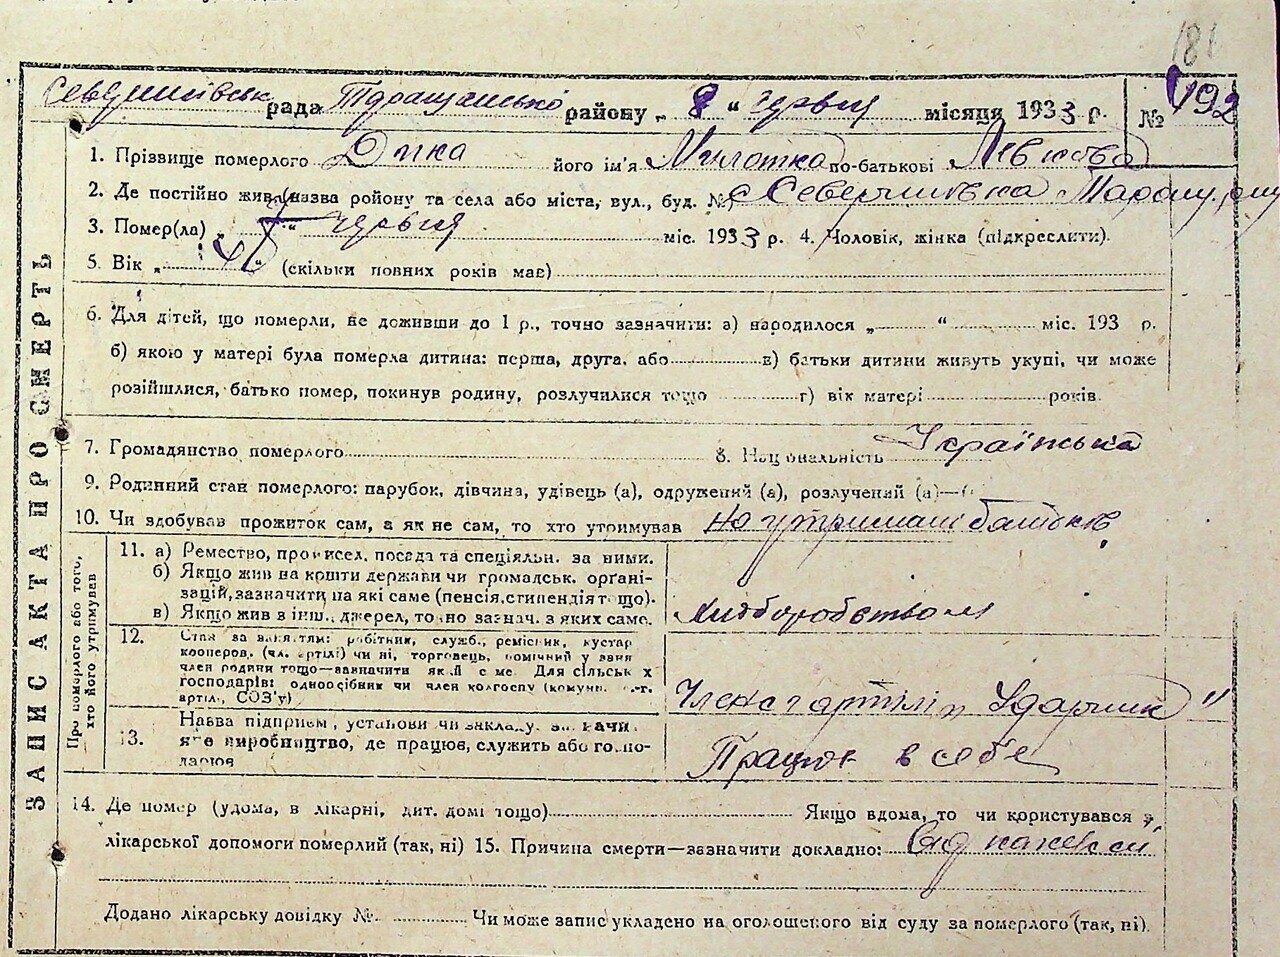 181
рада Таращанського району „ 8 “ червня місяця 1933 р. № 192
1. Прізвище померлого Дика його ім'я по-батькові Левкова
2. Де постійно жив (назва району та села або міста, вул., буд. № с Северинівка Таращ.
3. Помер(ла) „ “ червня міс. 1933 р. 4. Чоловік, жінка (підкреслити).
5. Вік „ “ (скільки повних років має)
6. Для дітей, що померли, не доживши до 1 р., точно зазначити: а) народилося „ “ міс. 193 р.
б) якою у матері була померла дитина: перша, друга, або в) батьки дитини живуть укупі, чи може
розійшлися, батько помер, покинув родину, розлучилися тощо г) вік матері років.
7. Громадянство померлого 8. Національність Українська
9. Родинний стан померлого: парубок, дівчина, удівець (а), одружений (а), розлучений (а)
10. Чи здобував прожиток сам, а як не сам, то хто утримував на утримані батьків
ЗАПИС АКТА ПРО СМЕРТЬ
Про померлого або того,
хто його утримував
11. а) Ремество, промисел, посада та спеціяльн. за ними.
б) Якщо жив на кошти держави чи громадськ. орґані-
зацій, зазначити на які саме (пенсія, стипендія тощо).
в) Якщо жив з інш. джерел, точно зазнач. з яких саме.
Хліборобством
12. Стан за заняттям: робітник, служб., ремісник, кустар
кооперов. (чл. артілі) чи ні, торговець, помічний у занят
член родини тощо—зазначити який саме. Для сільськ х
господарів: одноосібник чи член колгоспу (комуни, с.-г.
артіл, СОЗ'у)
Член с г артілі „ Ударник "
13. Назва підприєм, установи чи закладу, зазначи
яке виробництво, де працює, служить або госпо-
дарює
Працює в себе
14. Де помер (удома, в лікарні, дит. домі тощо) Якщо вдома, то чи користувався з
лікарської допомоги померлий (так, ні) 15. Причина смерти—зазначити докладно:
Додано лікарську довідку № Чи може запис укладено на оголошеного від суду за померлого (так, ні).